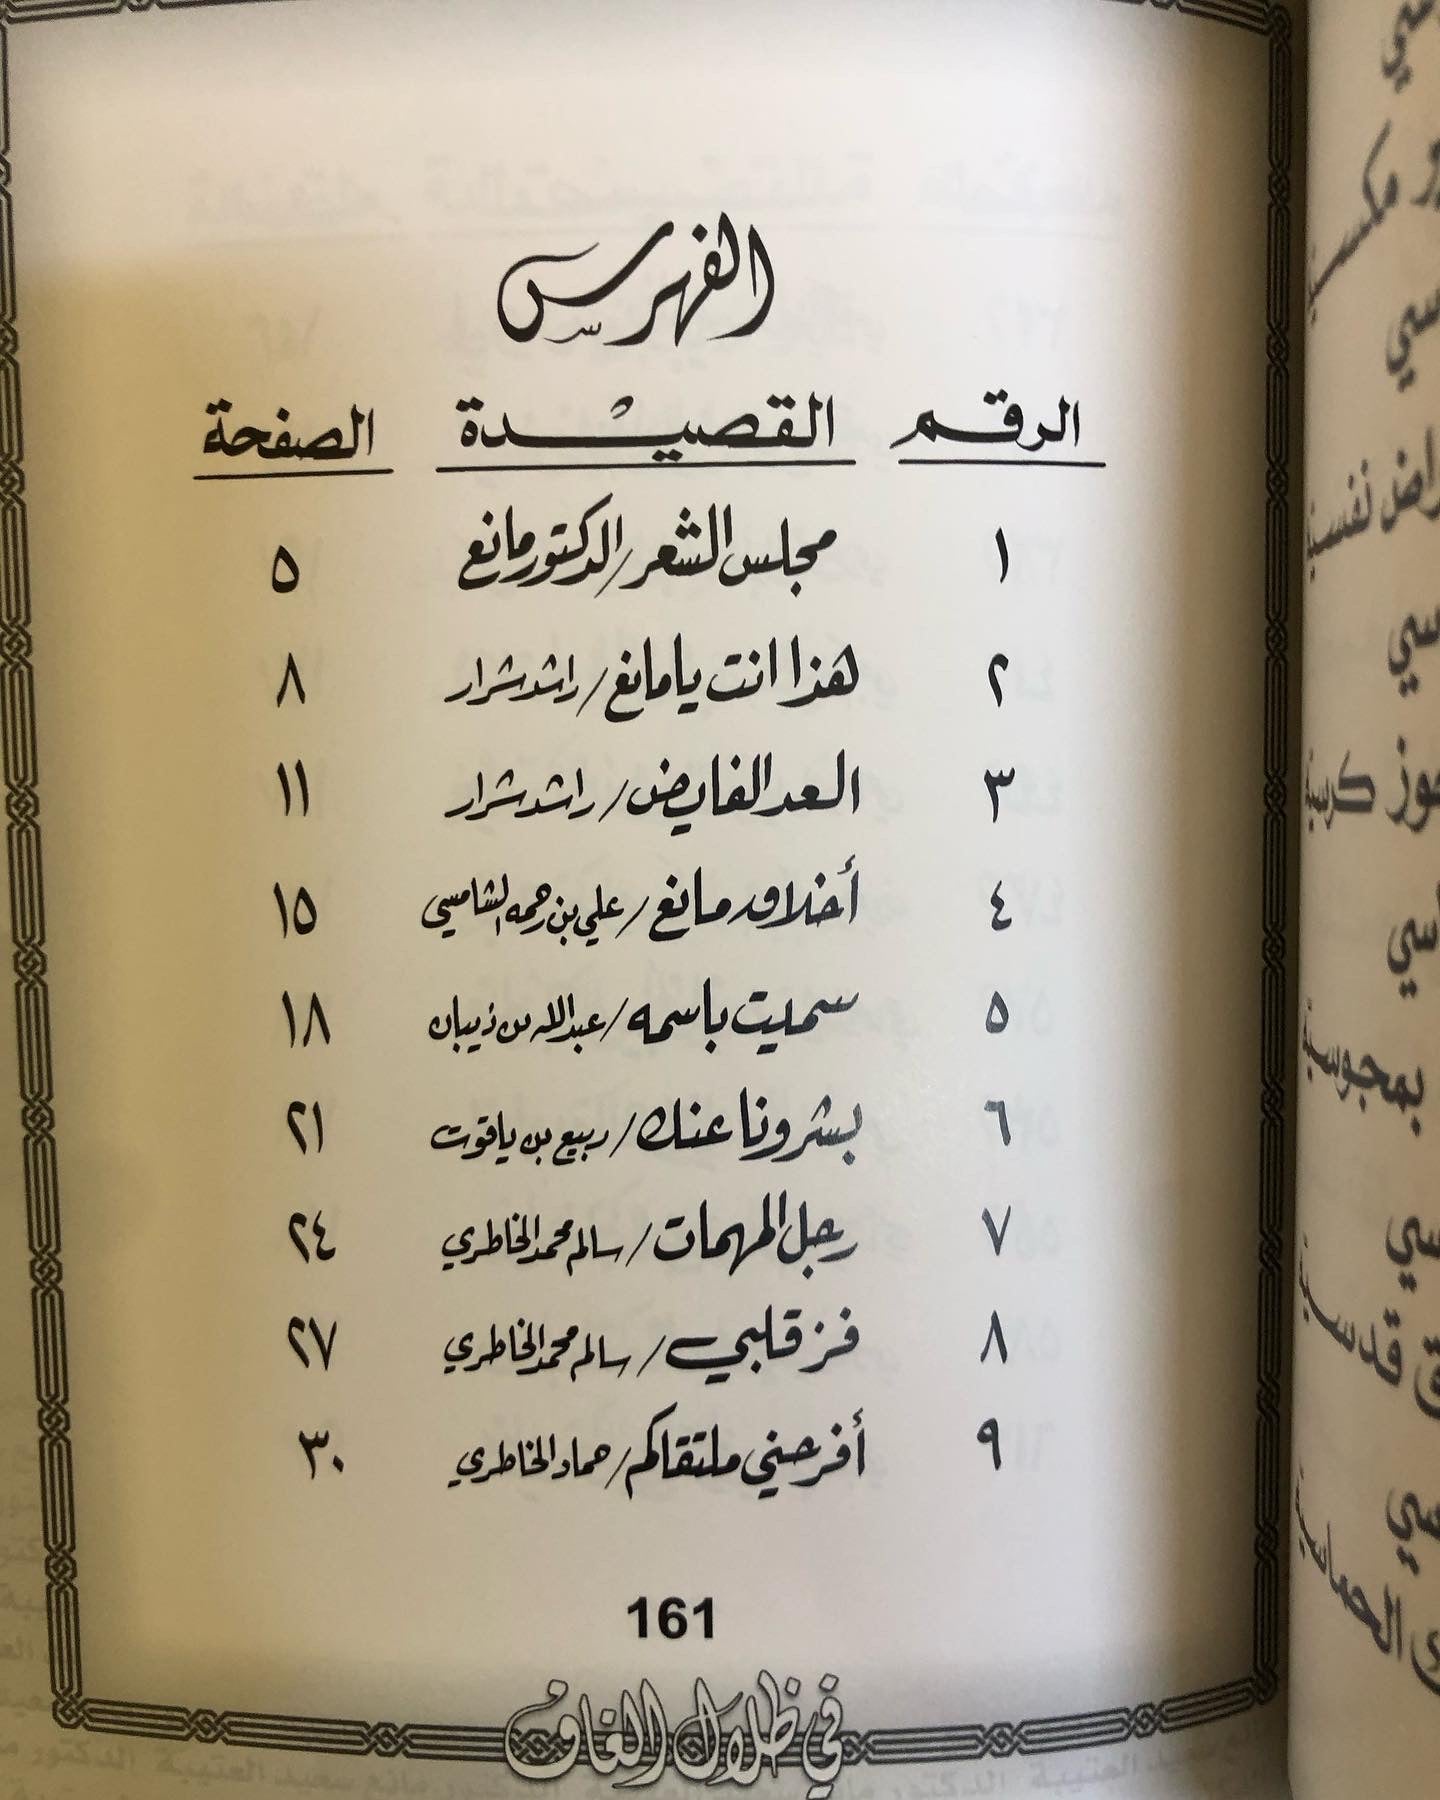 الفهرس
الرقم القصيدة الصفحة
١ مجلس الشعر/الدكتور مانع ٥
٢ هذا انت يا مانع/راشد شرار ٨
٣ العد الفايض/راشد شرار ١١
٤ أخلاق مانع/علي بن رحمه الشامسي ١٥
٥ سميت باسمه/عبدالله بن ذيبان ١٨
٦ بشرونا عنك/ربيع بن ياقوت ٢١
٧ رجل المهمات/سالم محمد الخاطري ٢٤
٨ فز قلبي/سالم محمد الخاطري ٢٧
٩ أفرحني ملتقاكم/حماد الخاطري ٣٠
161
في ظلال الغاف
نفسية
كرسية
بمجوسية
قدسية